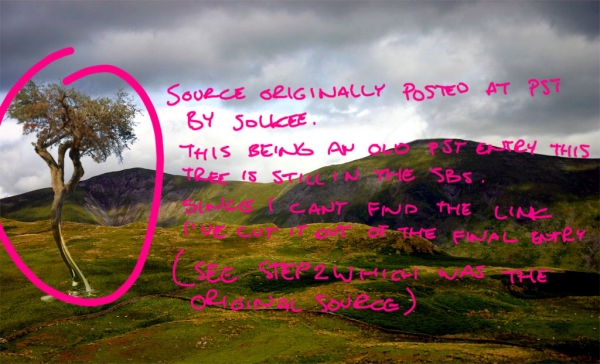 SOURCE ORIGINALLY POSTED AT PST
BY SOLKEE.
THIS BEING AN OLD PST ENTRY THIS
TREE IS STILL IN THE SBS.
SINCE I CANT FIND THE LINK
I'VE CUT IT OUT OF THE FINAL ENTRY
(SEE STEP 2 WHICH WAS THE
ORIGINAL SOURCE)